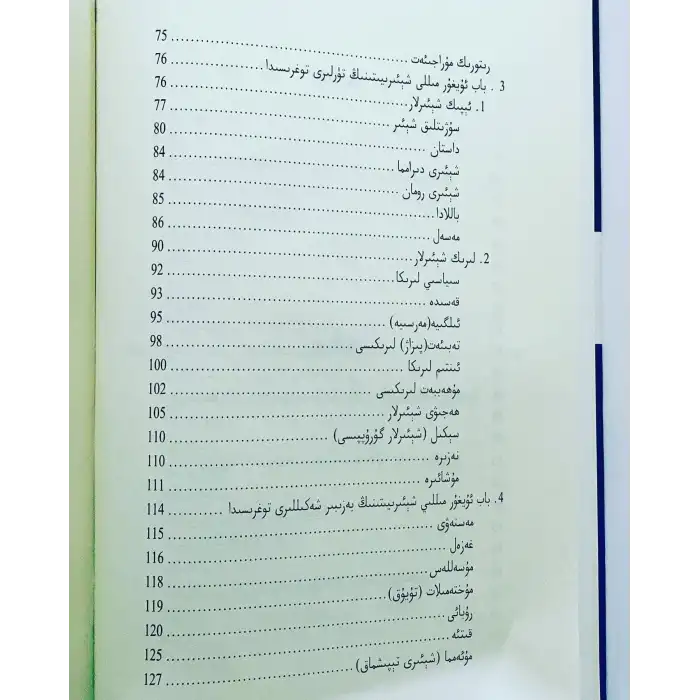 رىتورىك مۇراجىئەت ........ 75
3 . باب ئۇيغۇر مىللى شېئىرىيىتىنىڭ تۈرلىرى توغرىسىدا ........ 76
1. ئېپىك شېئىرلار ........ 76
سۇژىتلىق شېئىر ........ 77
داستان ........ 80
شېئىرى دىرامما ........ 84
شېئىرى رومان ........ 84
باللادا ........ 85
مەسەل ........ 86
2. لىرىك شېئىرلار ........ 90
سىياسىي لىرىكا ........ 92
قەسىدە ........ 93
ئىلگىيە(مەرسىيە) ........ 95
تەبىئەت(پىزاژ) لىرىكىسى ........ 98
ئىنتىم لىرىكا ........ 100
مۇھەببەت لىرىكىسى ........ 102
ھەجىۋى شېئىرلار ........ 105
سېكىل (شېئىرلار گۇرۇپپىسى) ........ 110
نەزىرە ........ 110
مۇشائىرە ........ 111
4. باب ئۇيغۇر مىللىي شېئىرىيىتىنىڭ بەزىبىر شەكىللىرى توغرىسىدا ........ 114
مەسنەۋى ........ 115
غەزەل ........ 116
مۇسەللەس ........ 118
مۇختەمىلات (تۇيۇق) ........ 119
رۇبائى ........ 120
قىتئە ........ 125
مۇئەمما (شېئىرى تېپىشماق) ........ 127